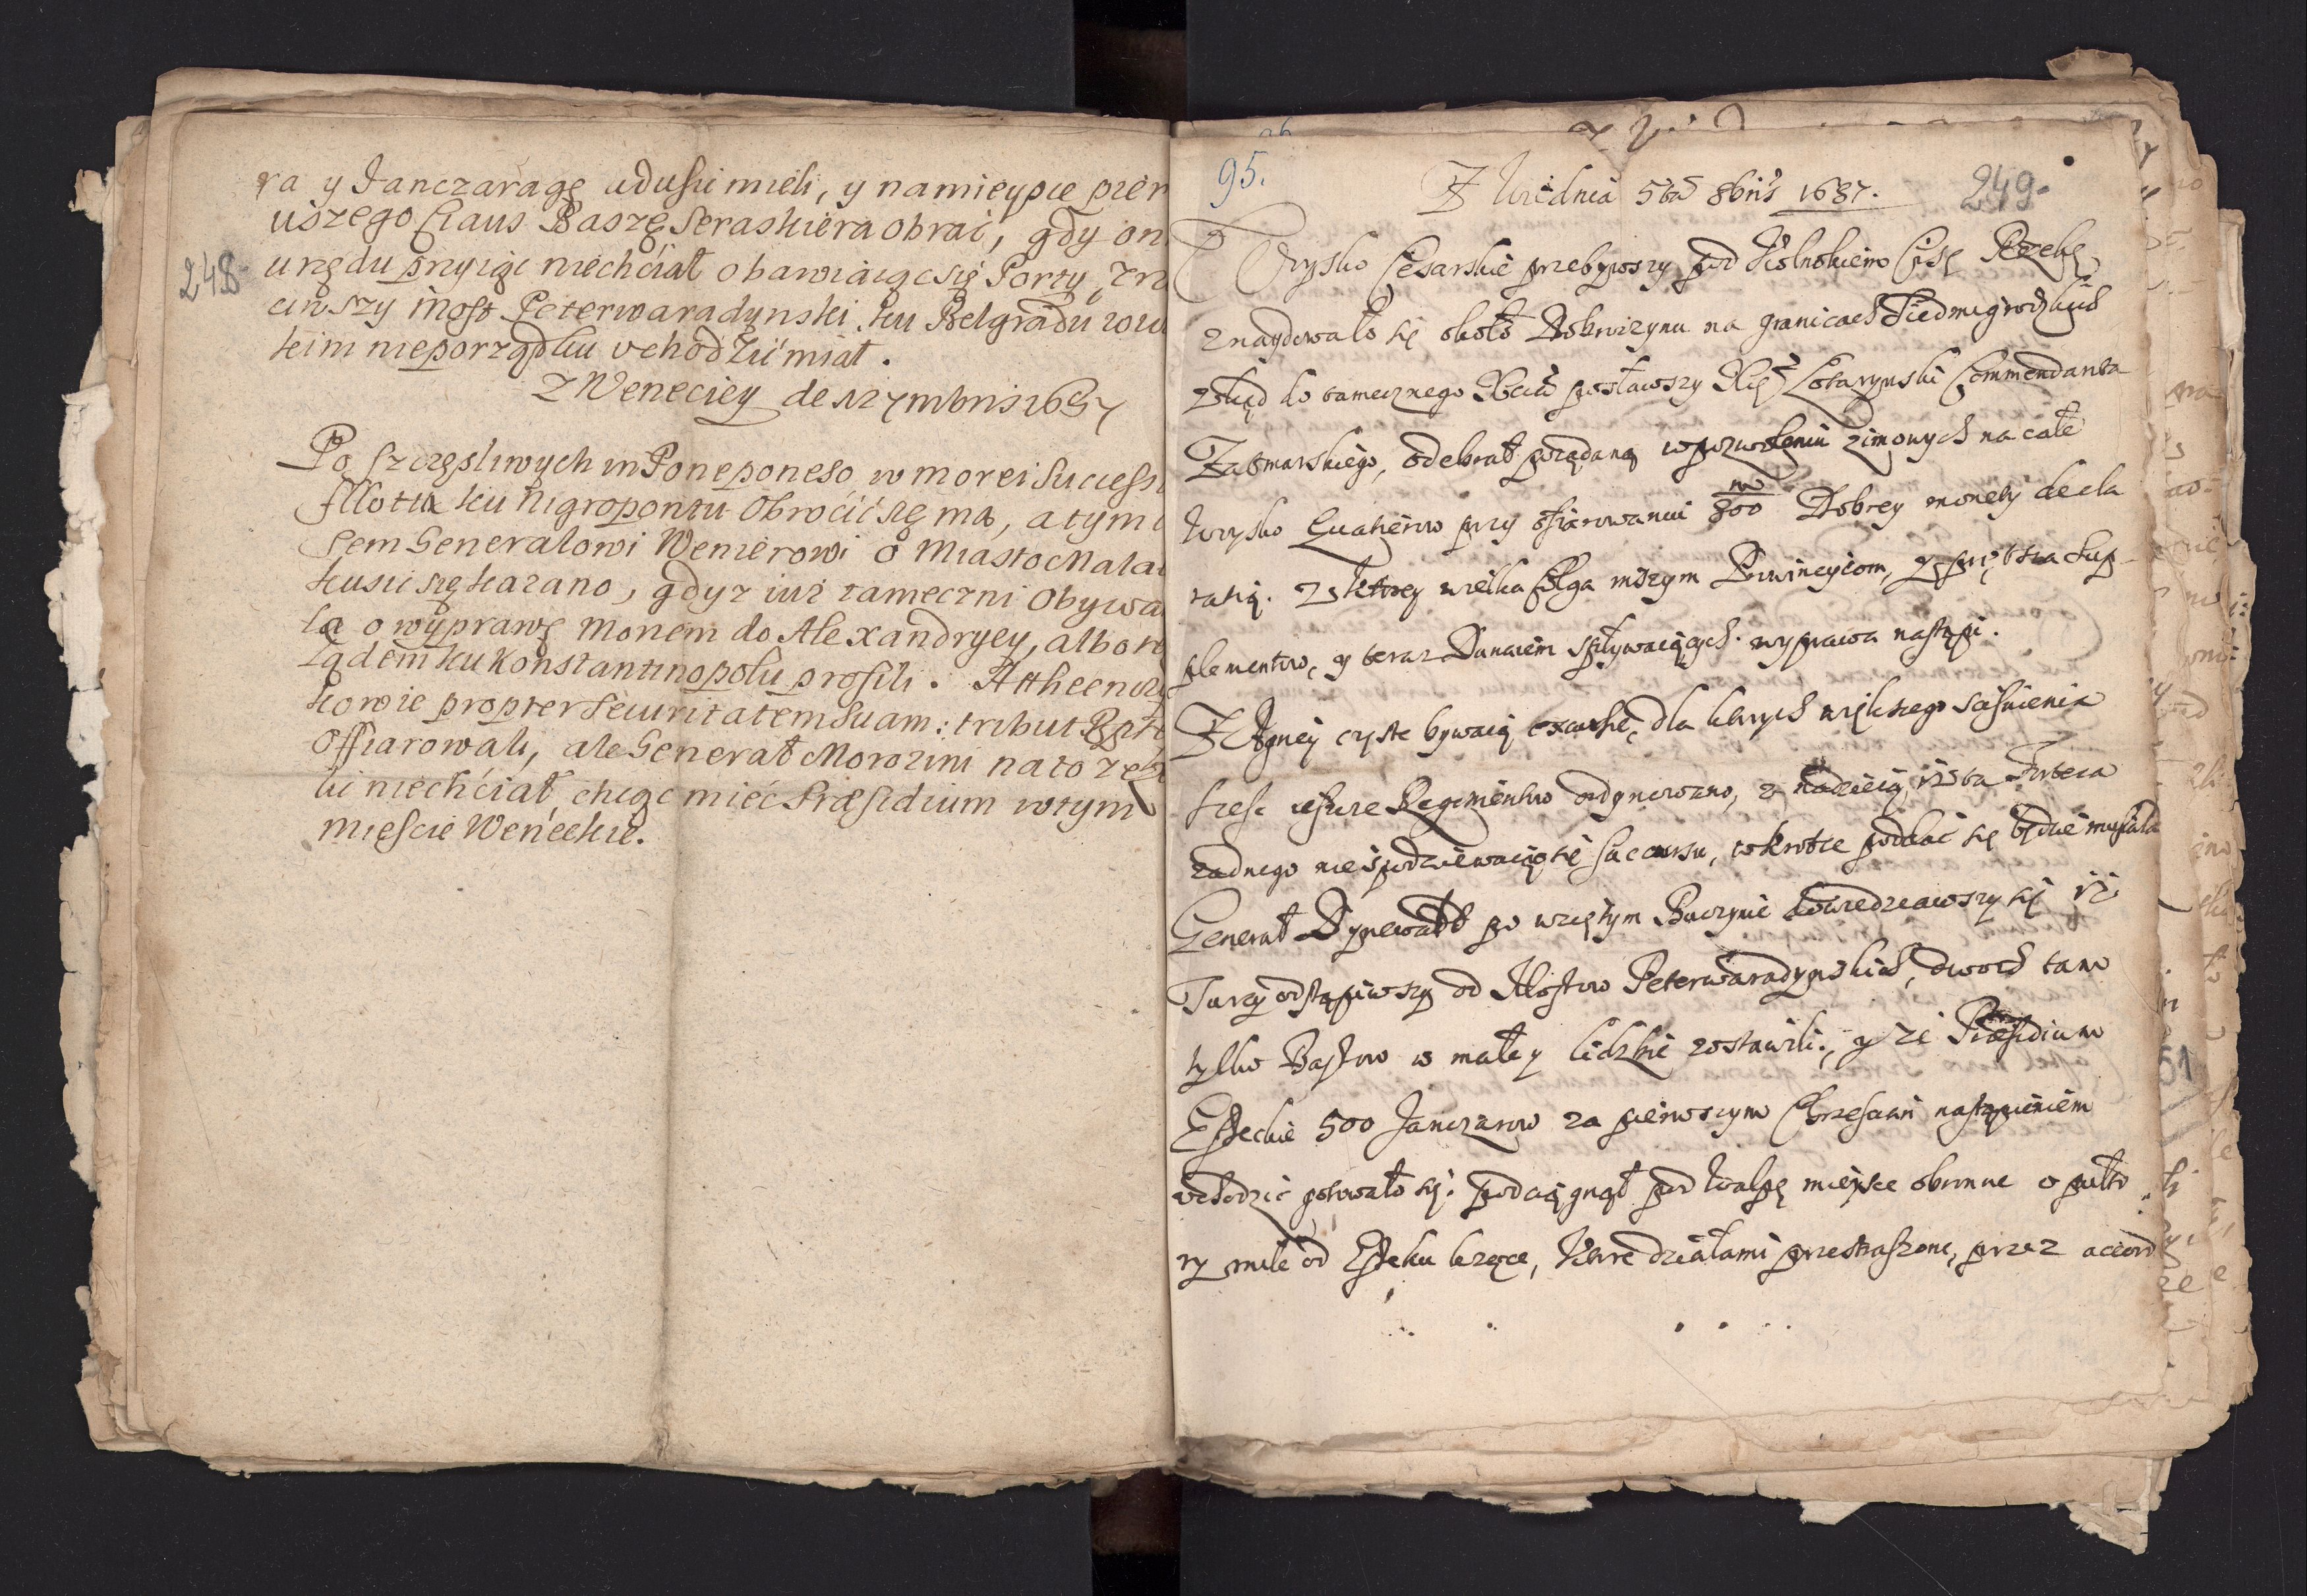 248
ra y Janczaragę udusić mieli, y na mieysce pier
wszego Ciaus Baszę Seraskiera obrać, gdy on
urzędu przyiąć niechciał obawiaiąc się Porty, zrzu
ciwszy most Peterwaradynski, ku Belgradu w
kim nieporządku uchodzić miał.
Z Weneciey de 12 7mbris 1687
Po szczęsliwych in Poneponeso w morei Success
Flotta ku Nigropontu Obrocić się ma, a tym
sem Generałowi Wenierowi o Miasto Mala
kusić się kazano, gdyz iuz tameczni Obywa
la o wyprawę monem do Alexandryey, albo
lądem ku Konstantinopolu prosili.
kowie propter Securitatem Suam: tribut
Offiarowali, ale Generał Morozini na to
li niechciał, chcąc mieć Præsidium w tym
miescie Weneckie.
95.
249.
Z Wiednia 5ta 8bris 1687.
Woysko Cesarskie przebywszy pod Zolnokiem Cisę Rzekę,
znaydowało się około Dobriczynu na granicach Siedmigrodzkich
zkąd do tamecznego Xcia posławszy Xżę Lotarynski Commendanta
Zatmarskiego, odebrał pożądaną w pozwoleniu zimowych na całe
Woysko Quatierow przy ofiarowaniu 800 m Dobrey monety decla
ratią. Z ktorey wielka folga inszym Prowincyiom, y prętsza Sup-
plementow, y teraz Dunaiem spływaiących wyprawa nastąpi.
Z Agriey częste bywaią excursie, dla ktorych większego scisnienia
szesc ieszcze Regimentow ordynowano, z nadzieią iż ta Forteca
zadnego niespodziewaiąc się Saccursu, wkrotce poddać się będzie musiała
Generał Dynewaldt po wziętym Buczynie dowiedziawszy się iż
Turcy odstąpiwszy od Mostow Peterwaradynskich, dwoch tam
tylko Baszow w małey liczbie zostawili, y ze Præsidium
Esseckie 500 Janczarow za pierwszym Chrzescian nastąpieniem
uchodzić gotowało się. podciągnął pod Walpę mieysce obronne o pułto
ry mile od Esseku lezące, ktore działami przestraszone, przez accord
51